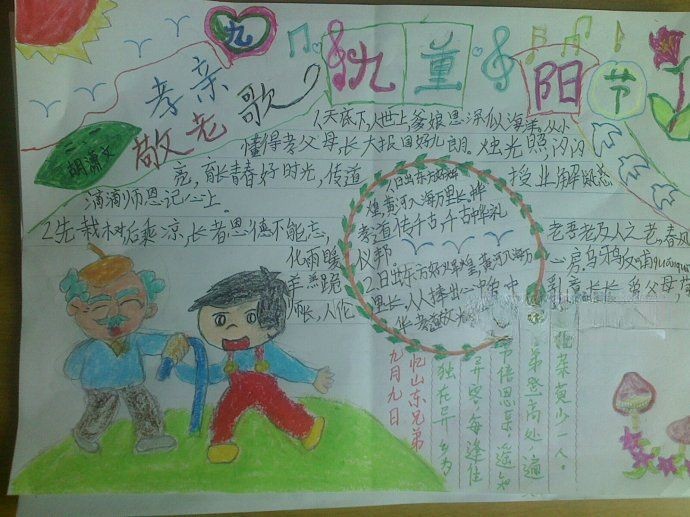 九
九重阳节
孝亲
敬老歌
胡潇文
1天底下,人世上,爹娘恩深似海洋。从小
懂得孝父母,长大报国好儿郎。烛光照,闪闪
亮,育长青春好时光,传道
授业解疑惑
滴滴师恩记心上。
2先栽树后乘凉,长者恩德不能忘,
老吾老及人之老,春风
化雨暖
心房。乌鸦反哺
羊羔跪
乳意长长,
父母,
师长,人伦
1日出东方好辉
煌,黄河入海万里长。
孝道传千古,千古
礼
仪邦。
2日出东方好辉煌,黄河入海万
里长,人人捧出一
中
华孝道放光
九月九日
忆山东兄弟
独在异乡为
异客,每逢佳
节倍思亲。遥知
兄弟登高处,遍
插茱萸少一人。